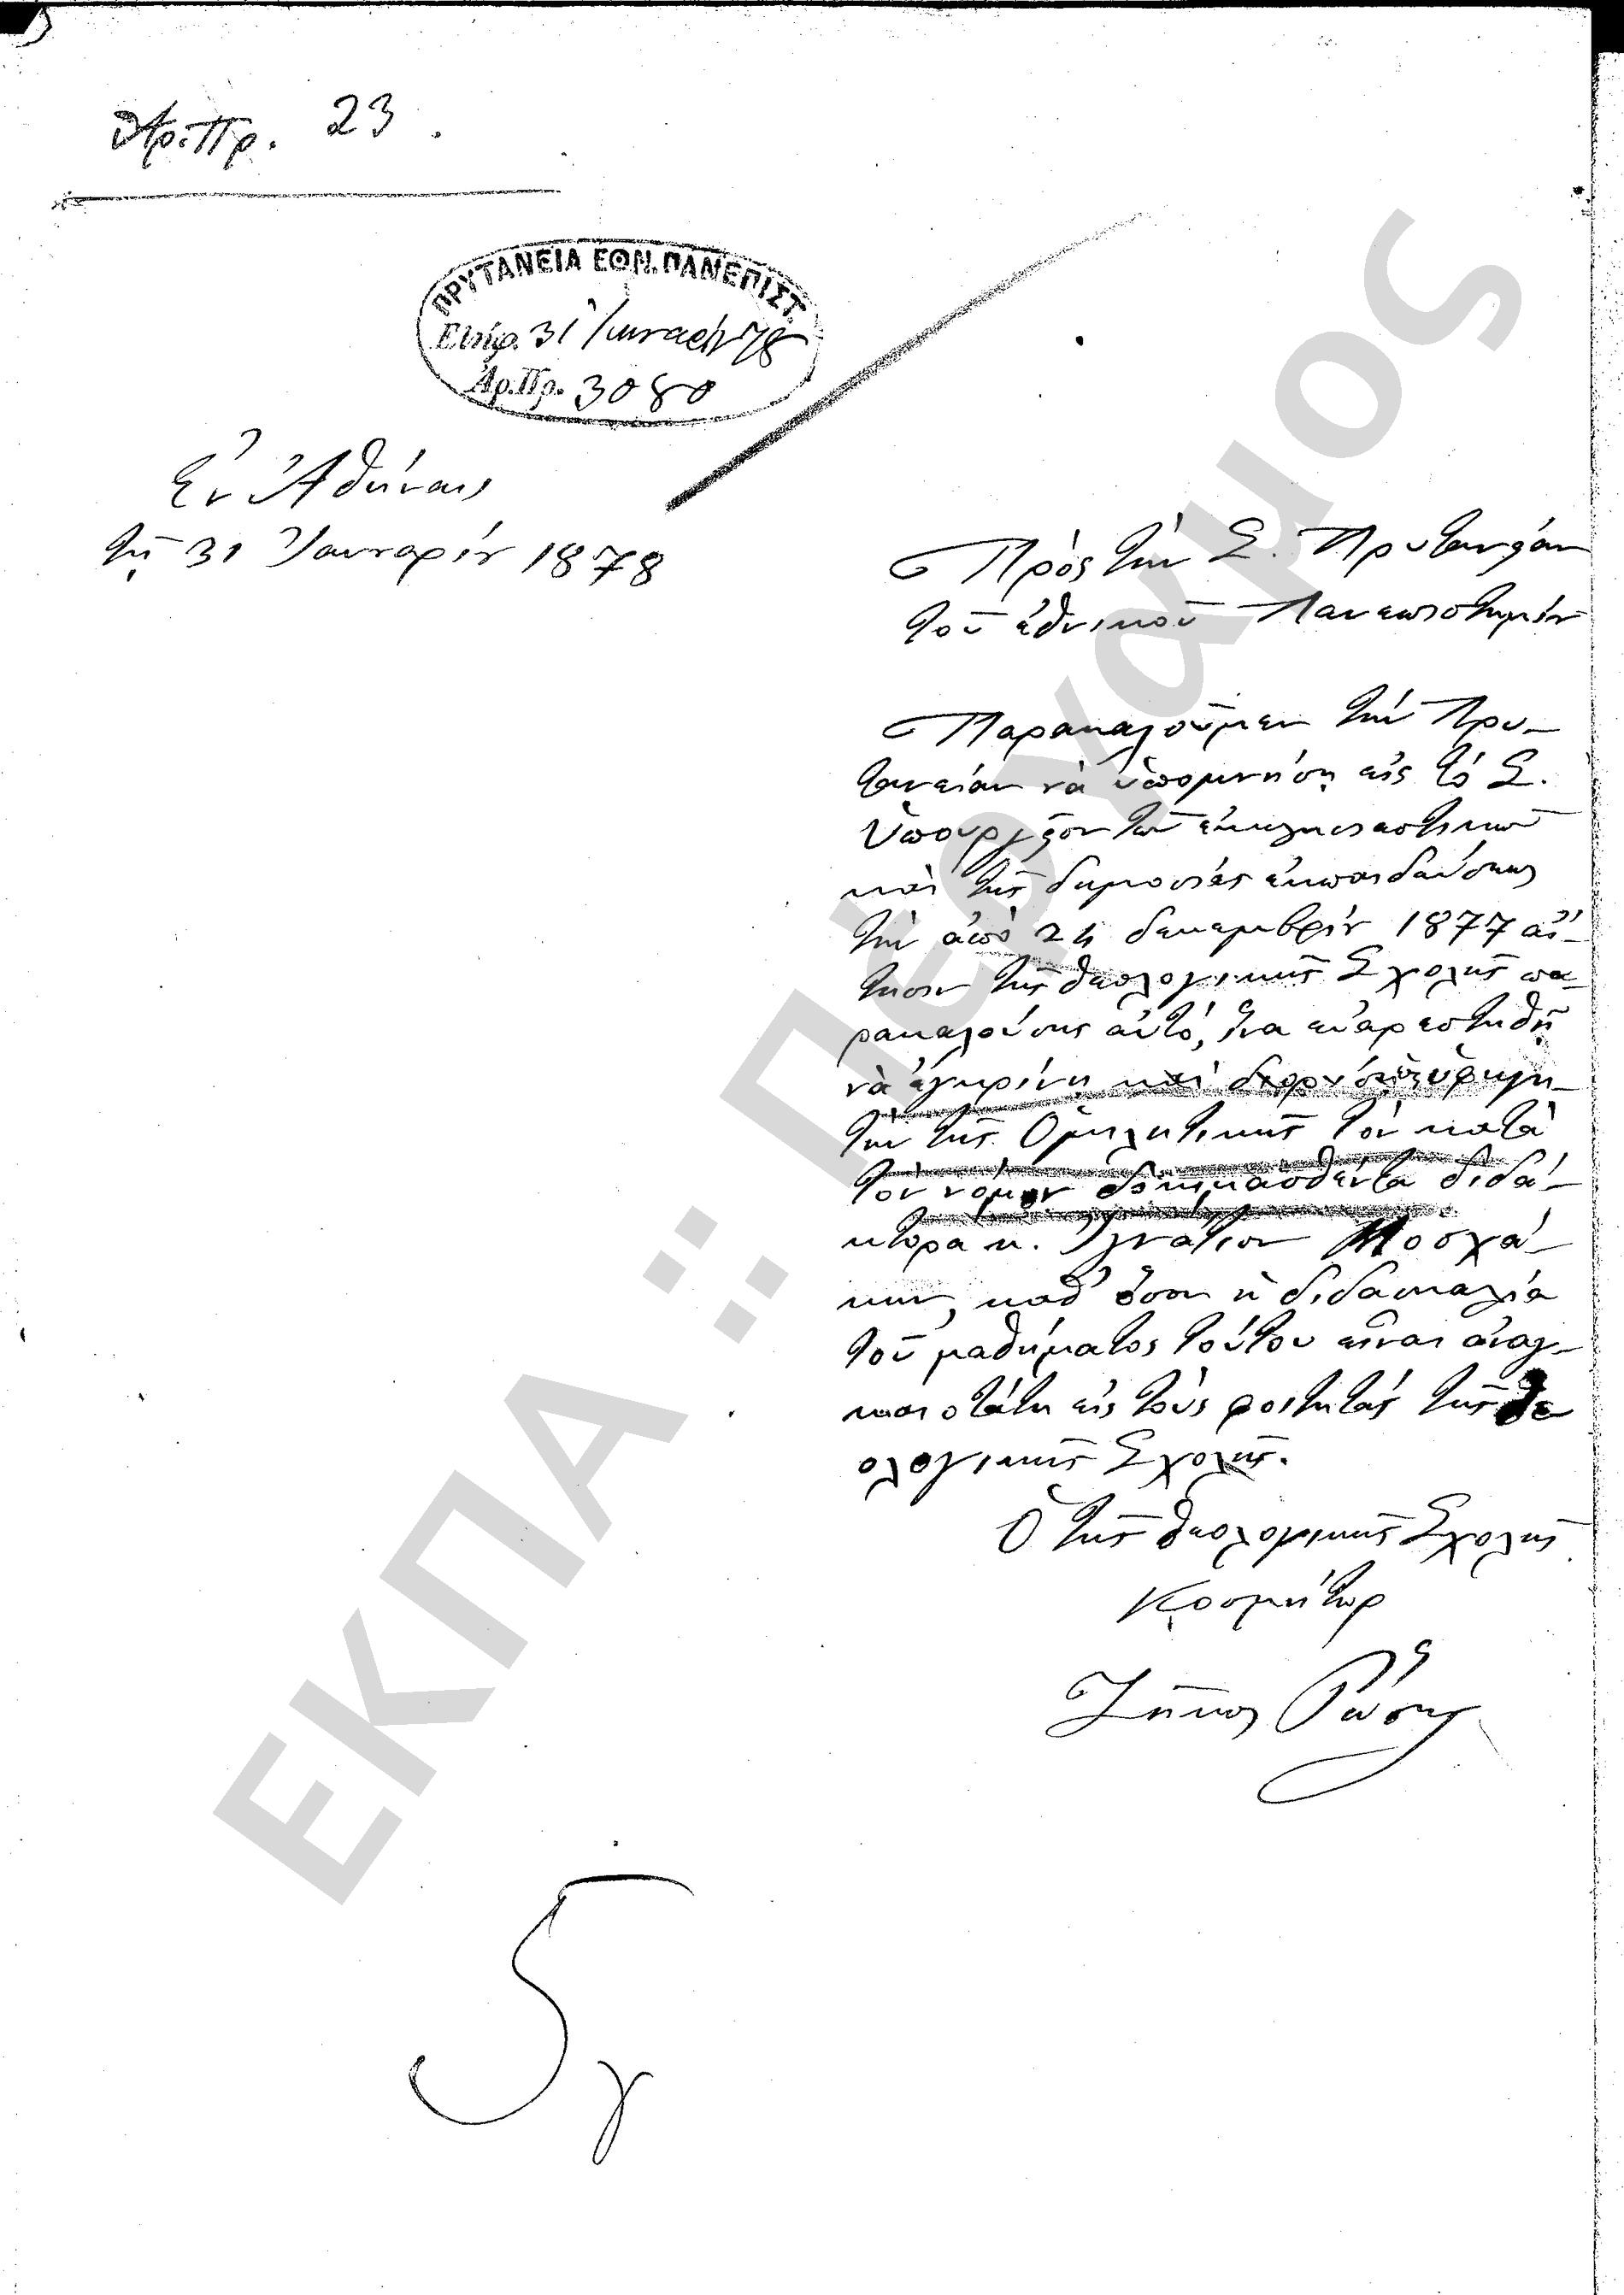 Ἀρ. Πρ. 23.
ΠΡΥΤΑΝΕΙΑ ΕΘΝ. ΠΑΝΕΠΙΣΤ.
Ελήφ. 31 Ιανουαρ 78
Ἀρ. Πρ. 3080
Ἐν Ἀθήναις
τῇ 31 Ἰανουαρίου 1878
Πρὸς τὴν Σ. Πρυτανείαν
τοῦ ἐθνικοῦ Πανεπιστημίου
Παρακαλοῦμεν τὴν Πρυ-
τανείαν νὰ ὑπομνήσῃ εἰς τὸ Σ.
Ὑπουργεῖον τῶν ἐκκλησιαστικῶν
καὶ τῆς δημοσίας ἐκπαιδεύσεως
τὴν ἀπὸ 24 δεκεμβρίου 1877 αἴ-
τησιν τῆς θεολογικῆς Σχολῆς πα-
ρακαλούσης αὐτό, ἵνα εὐαρεστηθῇ
νὰ ἐγκρίνῃ καὶ διορίσῃ ὑφηγη-
τὴν τῆς Ὁμιλητικῆς τὸν κατὰ
τὸν νόμον δοκιμασθέντα διδά-
κτορα κ. Ἰγνάτιον Μοσχά-
κην, καθ' ὅσον ἡ διδασκαλία
τοῦ μαθήματος τούτου εἶναι ἀναγ-
καιοτάτη εἰς τοὺς φοιτητὰς τῆς θε
ολογικῆς Σχολῆς.
Ὁ τῆς θεολογικῆς Σχολῆς
Κοσμήτωρ
Ζῆκος Ῥώσης
5
γ
ΕΚΠΑ :: Πέργαμος